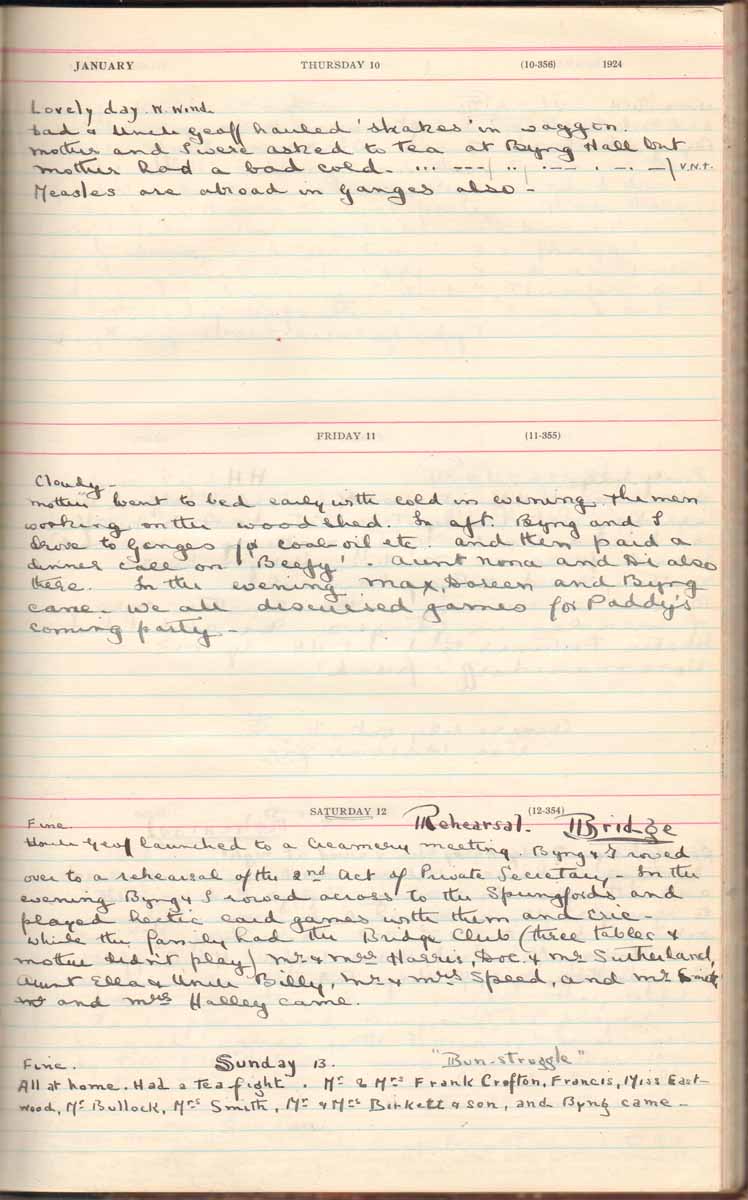 JANUARY THURSDAY 10 (10-356) 1924
Lovely day. W. Wind.
Dad & Uncle Geoff hauled 'shakes' in waggon.
Mother and I were asked to tea at Byng Hall but
mother had a bad cold. V.N.T.
Measles are abroad in Ganges also -
FRIDAY 11 (11-355)
Cloudy -
Mother went to bed early with cold in evening. The men
working on the wood shed. In aft. Byng and I
drove to Ganges for coal-oil etc. and then paid a
dinner call on 'Beefy'. Aunt Nona and Di also
there. In the evening Max, Doreen and Byng
came. We all discussed games for Paddy's
coming party -
SATURDAY 12 (12-354)
Rehearsal. Bridge
Fine.
Geoff launched to a Creamery meeting. Byng & I rowed
over to a rehearsal of the 2nd Act of Private Secretary - In the
evening Byng & I rowed across to the Springfords and
played hectic card games with them and Eric -
While the family had the Bridge Club (three tables &
mother didn't play) Mr & Mrs Harris, Doc. & Mr Sutherland,
Aunt Ella & Uncle Billy, Mr & Mrs Speed, and Mr
and Mrs Halley came.
Fine. Sunday 13. "Bun-struggle"
All at home. Had a Tea fight. Mr & Mrs Frank Crofton, Francis, Miss East-
wood, Mr Bullock, Mrs Smith, Mr & Mrs Birkett & son, and Byng came -